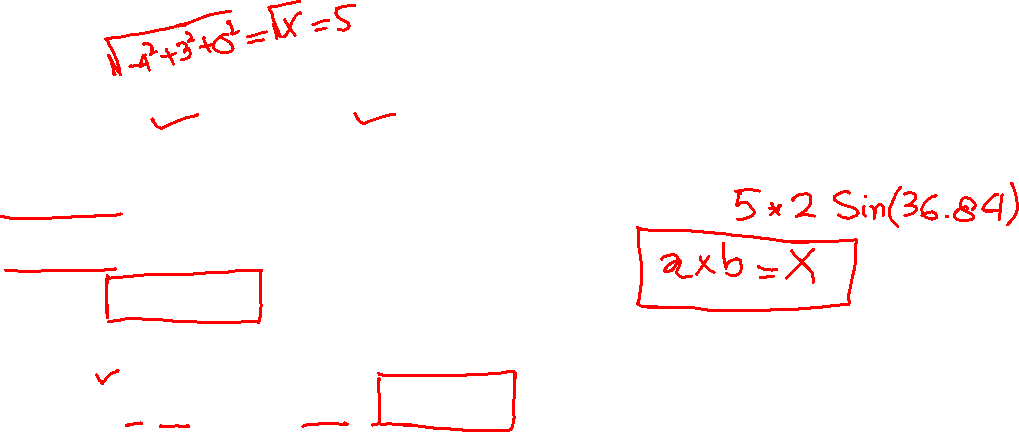 √-4²+3²+0² = √x = 5
5 * 2 Sin(36.84)
a×b = X